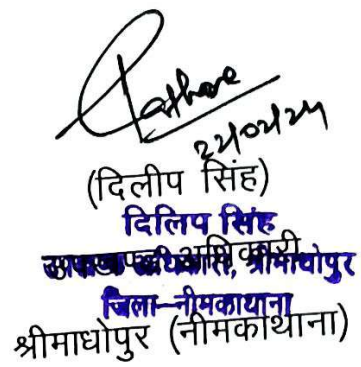 Rathore
22/02/24
(दिलीप सिंह)
दिलिप सिंह
उपखण्ड अधिकारी
उपखण्ड अधिकारी, श्रीमाधोपुर
जिला-नीमकाथाना
श्रीमाधोपुर (नीमकाथाना)